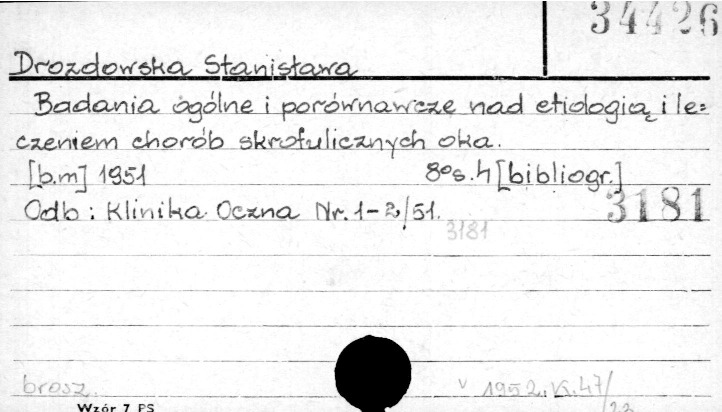 34426
Drozdowska Stanisława
Badania ogólne i porównawcze nad etiologią i le=
czeniem chorób skrofulicznych oka.
[b.m] 1951 8° s. 4 [bibliogr.]
Odb : Klinika Oczna Nr. 1-2/51. 3181
3181
brosz. v 1952. K. 47/
Wzór 7 PS 23